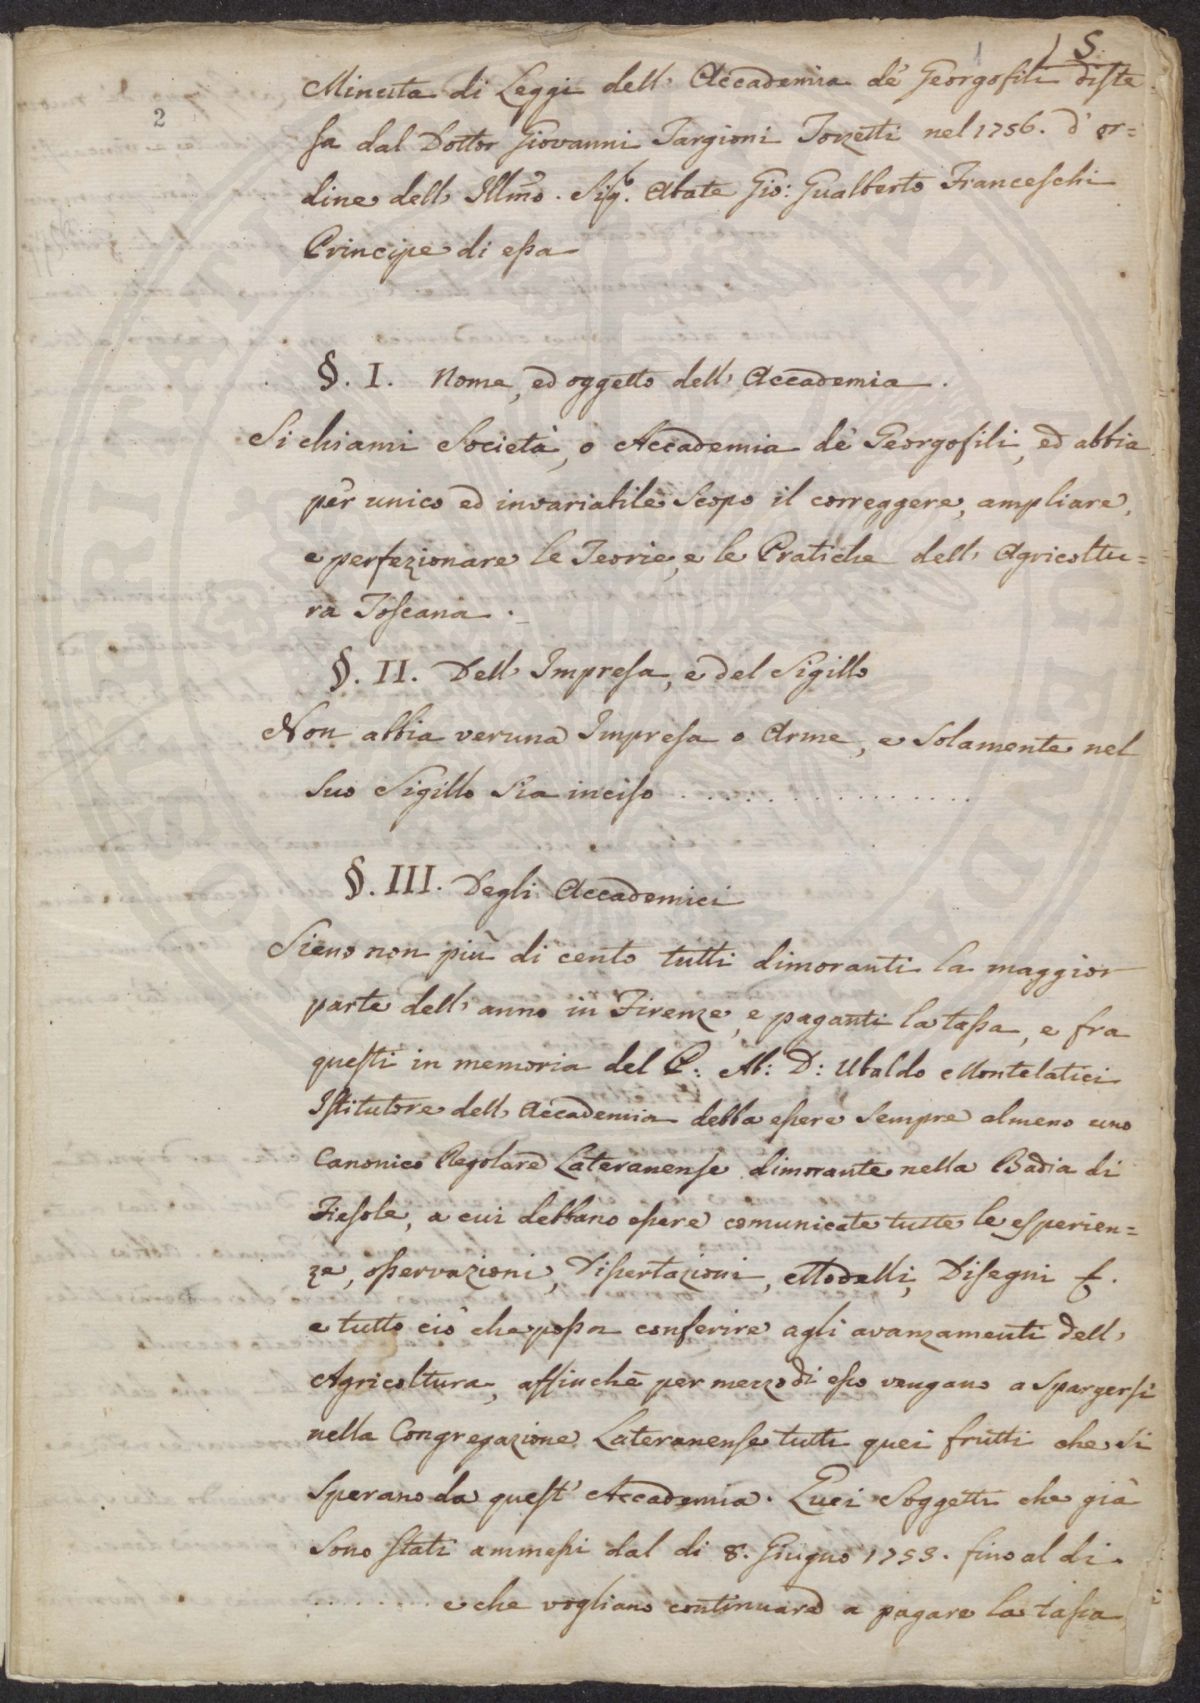 5.
2
Minuta di Leggi dell' Accademia de' Georgofili diste
sa dal Dottor Giovanni Targioni Tozzetti nel 1756. d' or=
dine dell' Illmo. Sigr. Abate Gio: Gualberto Franceschi
Principe di essa
§. I. Nome, ed oggetto dell' Accademia.
Si chiami Società, o Accademia de' Georgofili, ed abbia
per unico ed invariabile Scopo il correggere, ampliare,
e perfezionare le Teorie, e le Pratiche dell' Agricoltu=
ra Toscana.
§. II. Dell' Impresa, e del Sigillo
Non abbia veruna Impresa o Arme, e Solamente nel
Suo Sigillo Sia inciso . . . . . . . . . . . . . . .
§. III. Degli Accademici
Sieno non più di cento tutti dimoranti la maggior
parte dell' anno in Firenze, e paganti la tassa, e fra
questi in memoria del P: Ab: D: Ubaldo Montelatici
Istitutore dell' Accademia debba essere Sempre almeno uno
Canonico Regolare Lateranense dimorante nella Badia di
Fiesole, a cui debbano essere comunicate tutte le esperien=
ze, osservazioni, Dissertazioni, Modelli, Disegni &.
e tutto ciò che possa conferire agli avanzamenti dell'
Agricoltura, affinchè per mezzo di esso vengano a Spargersi
nella Congregazione Lateranense tutti quei frutti che Si
Sperano da quest' Accademia. Quei Soggetti che già
Sono Stati ammessi dal dì 8. Giugno 1753. fino al dì.
. . . . . . . . . e che vogliano continuare a pagare la tassa,